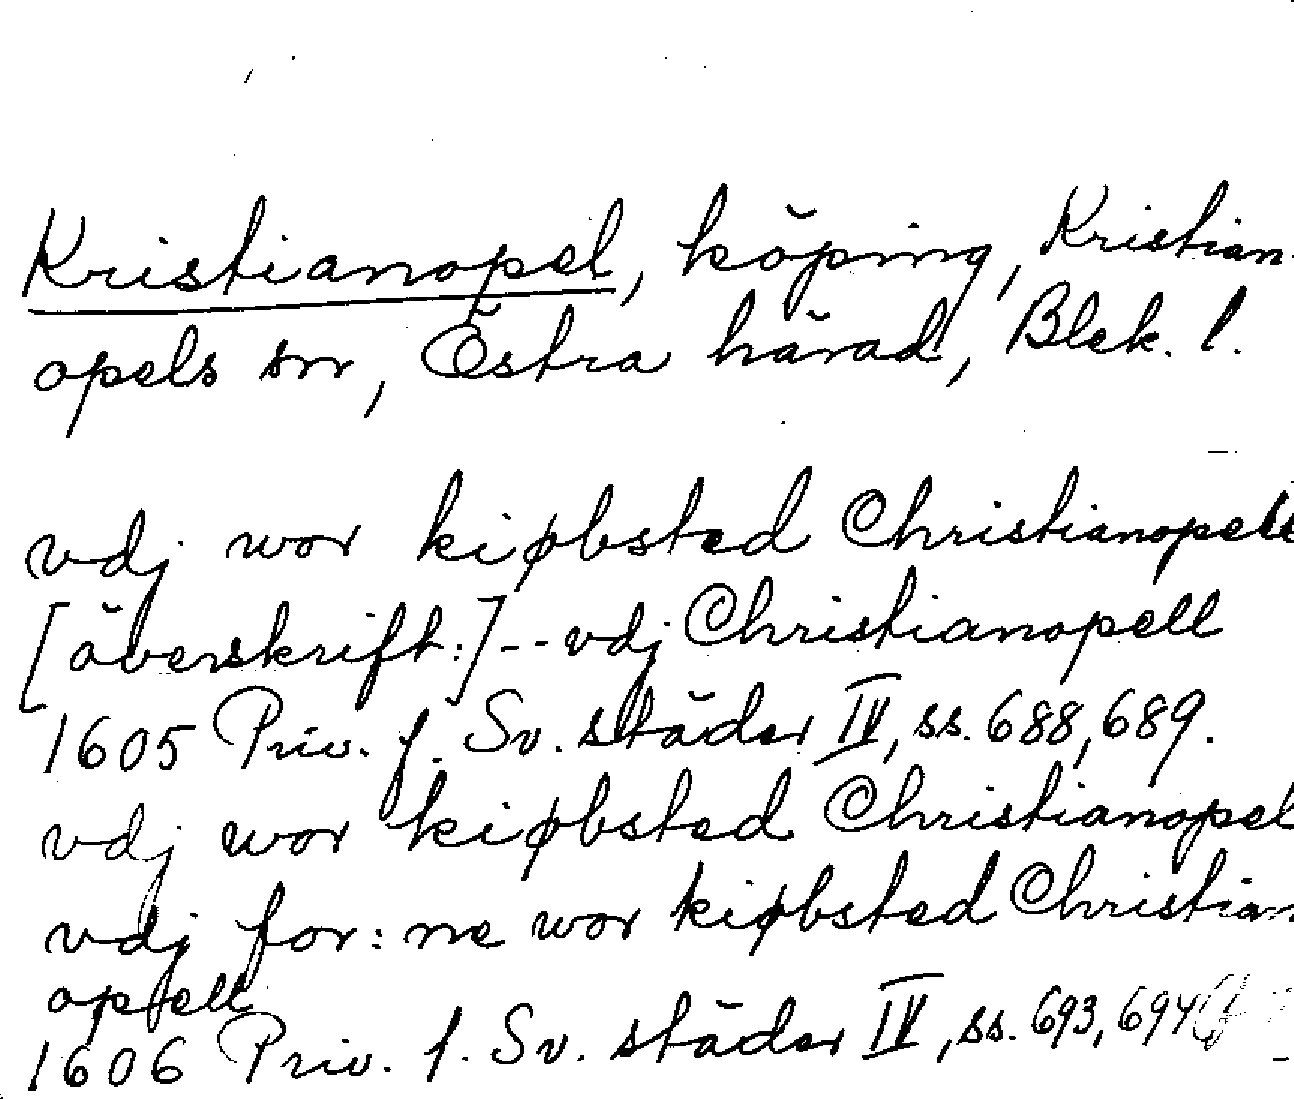 Kristianopel, köping, Kristian-
opels sn, Östra härad, Blek. l.
vdj wor kiøbsted Christianopell
[överskrift:] -- vdj Christianopell
1605 Priv. f. Sv. städer IV, ss. 688, 689.
vdj wor kiøbsted Christianopel
vdj for:ne wor kiøbsted Christian
opell
1606 Priv. f. Sv. städer IV, ss. 693, 694